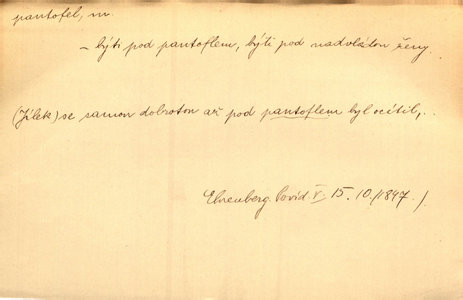 pantofel, m.
– býti pod pantoflem, býti pod nadvládou ženy.
(Jílek) se samou dobrotou až pod pantoflem byl ocítil,..
Ehrenberg. Povíd. V. 15. 10. (1847.)